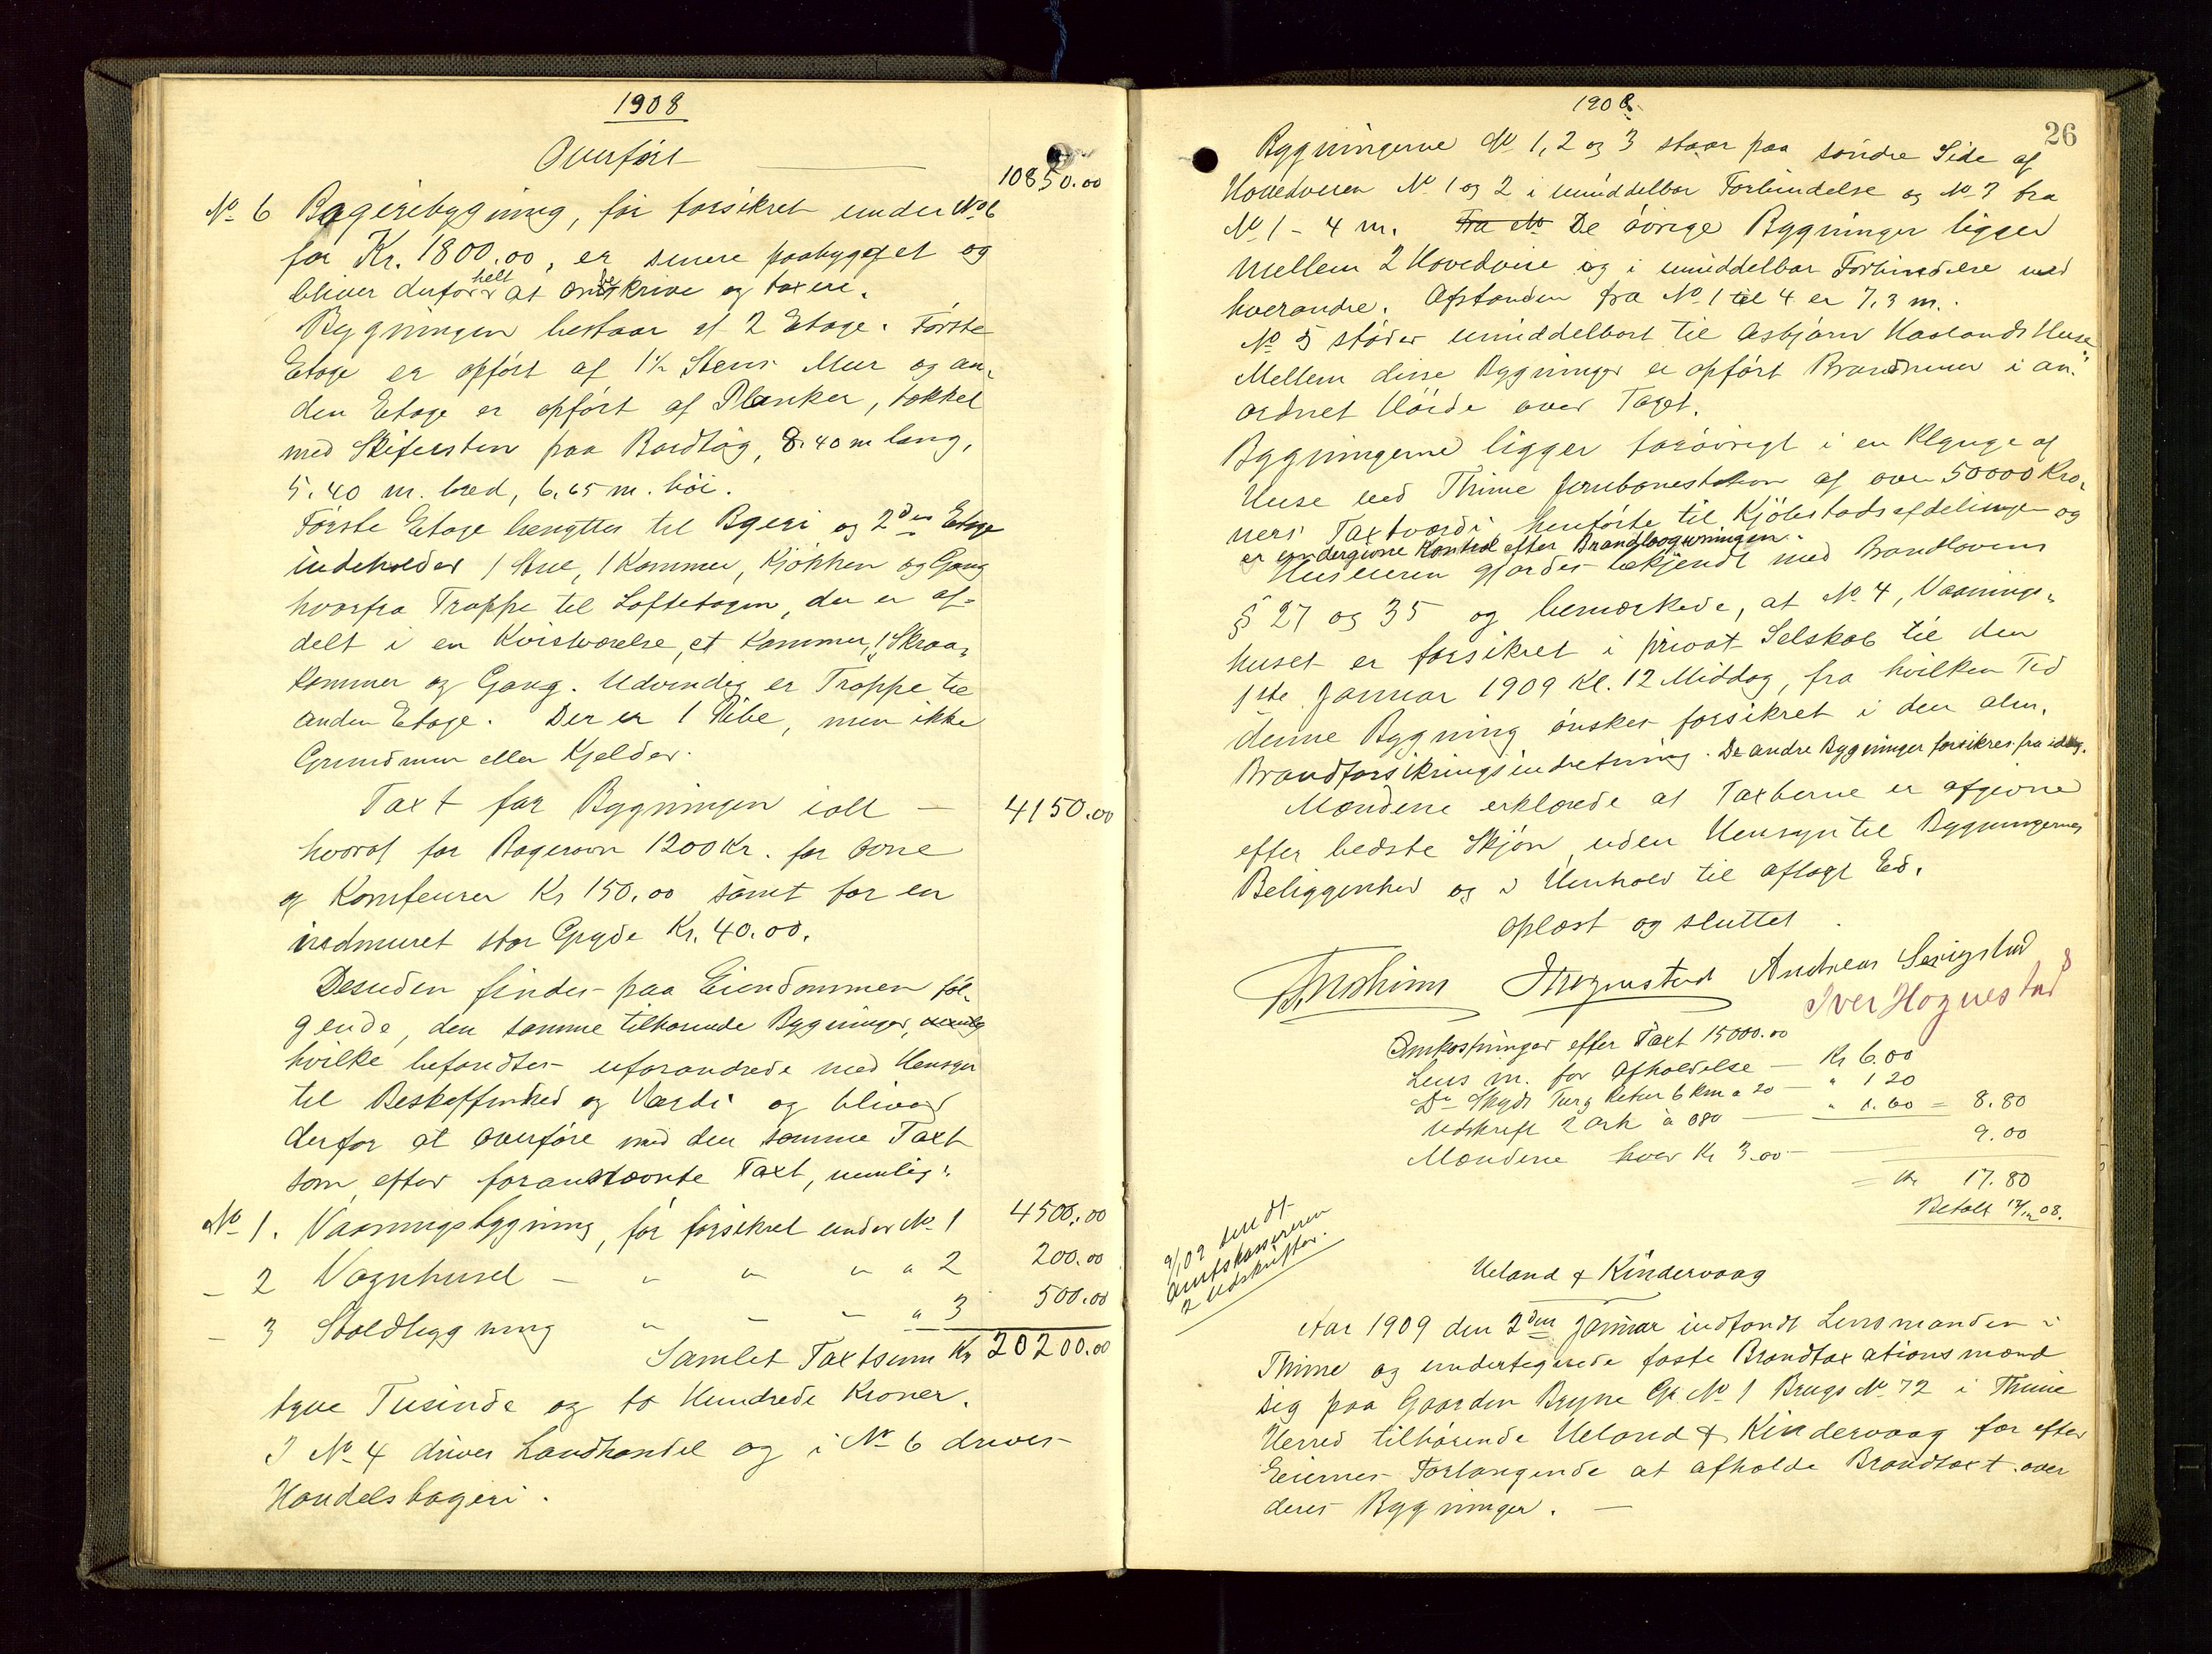 1908
Overført
10850.00
No 6 Bageribygning, før forsikret under No 6
for Kr. 1800.00, er senere paabygget og
bliver derfor helt at omskrive og taxere.
Bygningen bestaar af 2 Etage. Første
Etage er opført af 1½ Stens Mur og an-
den Etage er opført af Planker, tækket
med Skifersten paa Bordtag, 8.40 m lang,
5.40 m. bred, 6.65 m. høi.
Første Etage benyttes til Bgeri og 2den Etage
indeholder 1 Stue, 1 Kammer, Kjøkken og Gang
hvorfra Trappe til Loftetagen, der er af-
delt i en Kvistværelse, et Kammer, 1 Skraa-
kammer og Gang. Udvendig er Trappe til
anden Etage. Der er 1 Pibe, men ikke
Grundmur eller Kjelder.
Taxt for Bygningen ialt — 4150.00
hvoraf for Bagerovn 1200 Kr. for ovne
og Komfeurer Kr 150.00 samt for en
indmuret stor Gryde Kr. 40.00.
Desuden findes paa Eiendommen føl-
gende, den samme tilhørende Bygninger,
hvilke befandtes uforandrede med Hensyn
til Beskaffenhed og Værdi og bliver
derfor at overføre med den samme Taxt
som efter foranstævnte Taxt, nemlig:
No 1. Vaaningsbygning, før forsikret under No 1 4500.00
— 2 Vognhuset — " " " " 2 200.00
— 3 Staldbygning " " " " 3 500.00
Samlet Taxtsum Kr 20200.00
tyve Tusinde og to Hundrede Kroner.
I No 4 drives Landhandel og i No 6 drives
Handelsbageri.
1908.
26
Bygningerne No 1, 2 og 3 staar paa søndre Side af
Hovedveien No 1 og 2 i umiddelbar Forbindelse og No 3 fra
No 1 - 4 m. Fra No De øvrige Bygninger ligger
mellem 2 Hovedveie og i umiddelbar Forbindelse med
hverandre. Afstanden fra No 1 til 4 er 7,3 m.
No 5 støder umiddelbart til Asbjørn Haslands Huse
Mellem disse Bygninger er opført Brandmur i an-
ordnet Høide over Taget.
Bygningerne ligger forøvrigt i en Klynge af
Huse ved Thime Jernbanestation af over 50000 Kro-
ners Taxtværdi, henførte til Kjøbstadsafdelingen og
er undergivne Kontrol efter Brandlovgivningen.
Huseieren gjordes bekjendt med Brandlovens
§ 27 og 35 og bemærkede, at No 4, Vaanings-
huset er forsikret i privat Selskab til den
1ste Januar 1909 Kl. 12 Middag, fra hvilken Tid
denne Bygning ønskes forsikret i den alm.
Brandforsikringsindretning. De andre Bygninger forsikres fra idag.
Mændene erklærede at Taxterne er afgivne
efter bedste Skjøn, uden Hensyn til Bygningernes
Beliggenhed og i Henhold til aflagt Ed.
Oplæst og sluttet.
Andreas Serigstad
Iver Hognestad
Omkostninger efter Taxt 15000.00
Lens m. for Afholdelse — Kr 6.00
Do Skyds Tur & Retur 6 Km a 20 — " 1 20
Udskrift 2 ark à 080 — " 1.60 = 8.80
Mændene hver Kr 3.00 — 9.00
= Kr 17.80
Betalt 12/12 08.
9/1 09 sendt
Amtskassereren
2 Udskrifter.
Ueland & Kindervaag
Aar 1909 den 2den Januar indfandt Lensmanden i
Thime og undertegnede faste Brandtaxationsmænd
sig paa Gaarden Bryne Gr. No 1 Brugs No 72 i Thime
Herred tilhørende Ueland & Kindervaag for efter
Eiernes Forlangende at afholde Brandtaxt over
deres Bygninger. —